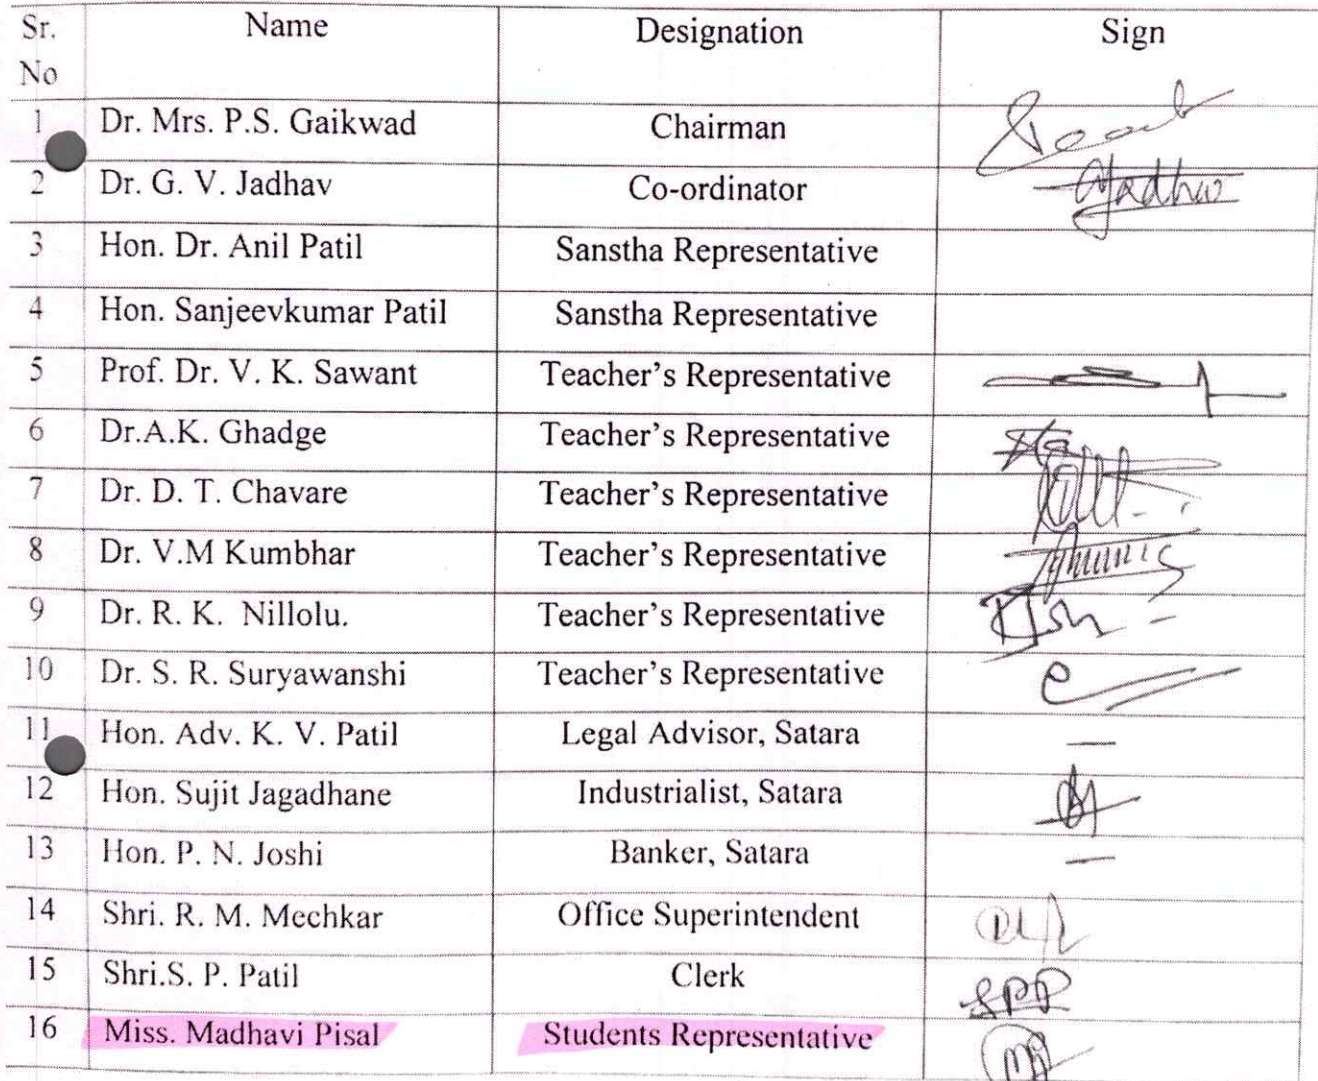 Sr. No Name Designation Sign
1 Dr. Mrs. P.S. Gaikwad Chairman
2 Dr. G. V. Jadhav Co-ordinator
3 Hon. Dr. Anil Patil Sanstha Representative
4 Hon. Sanjeevkumar Patil Sanstha Representative
5 Prof. Dr. V. K. Sawant Teacher's Representative
6 Dr.A.K. Ghadge Teacher's Representative
7 Dr. D. T. Chavare Teacher's Representative
8 Dr. V.M Kumbhar Teacher's Representative
9 Dr. R. K. Nillolu. Teacher's Representative
10 Dr. S. R. Suryawanshi Teacher's Representative
11 Hon. Adv. K. V. Patil Legal Advisor, Satara —
12 Hon. Sujit Jagadhane Industrialist, Satara
13 Hon. P. N. Joshi Banker, Satara —
14 Shri. R. M. Mechkar Office Superintendent
15 Shri.S. P. Patil Clerk SPP
16 Miss. Madhavi Pisal Students Representative